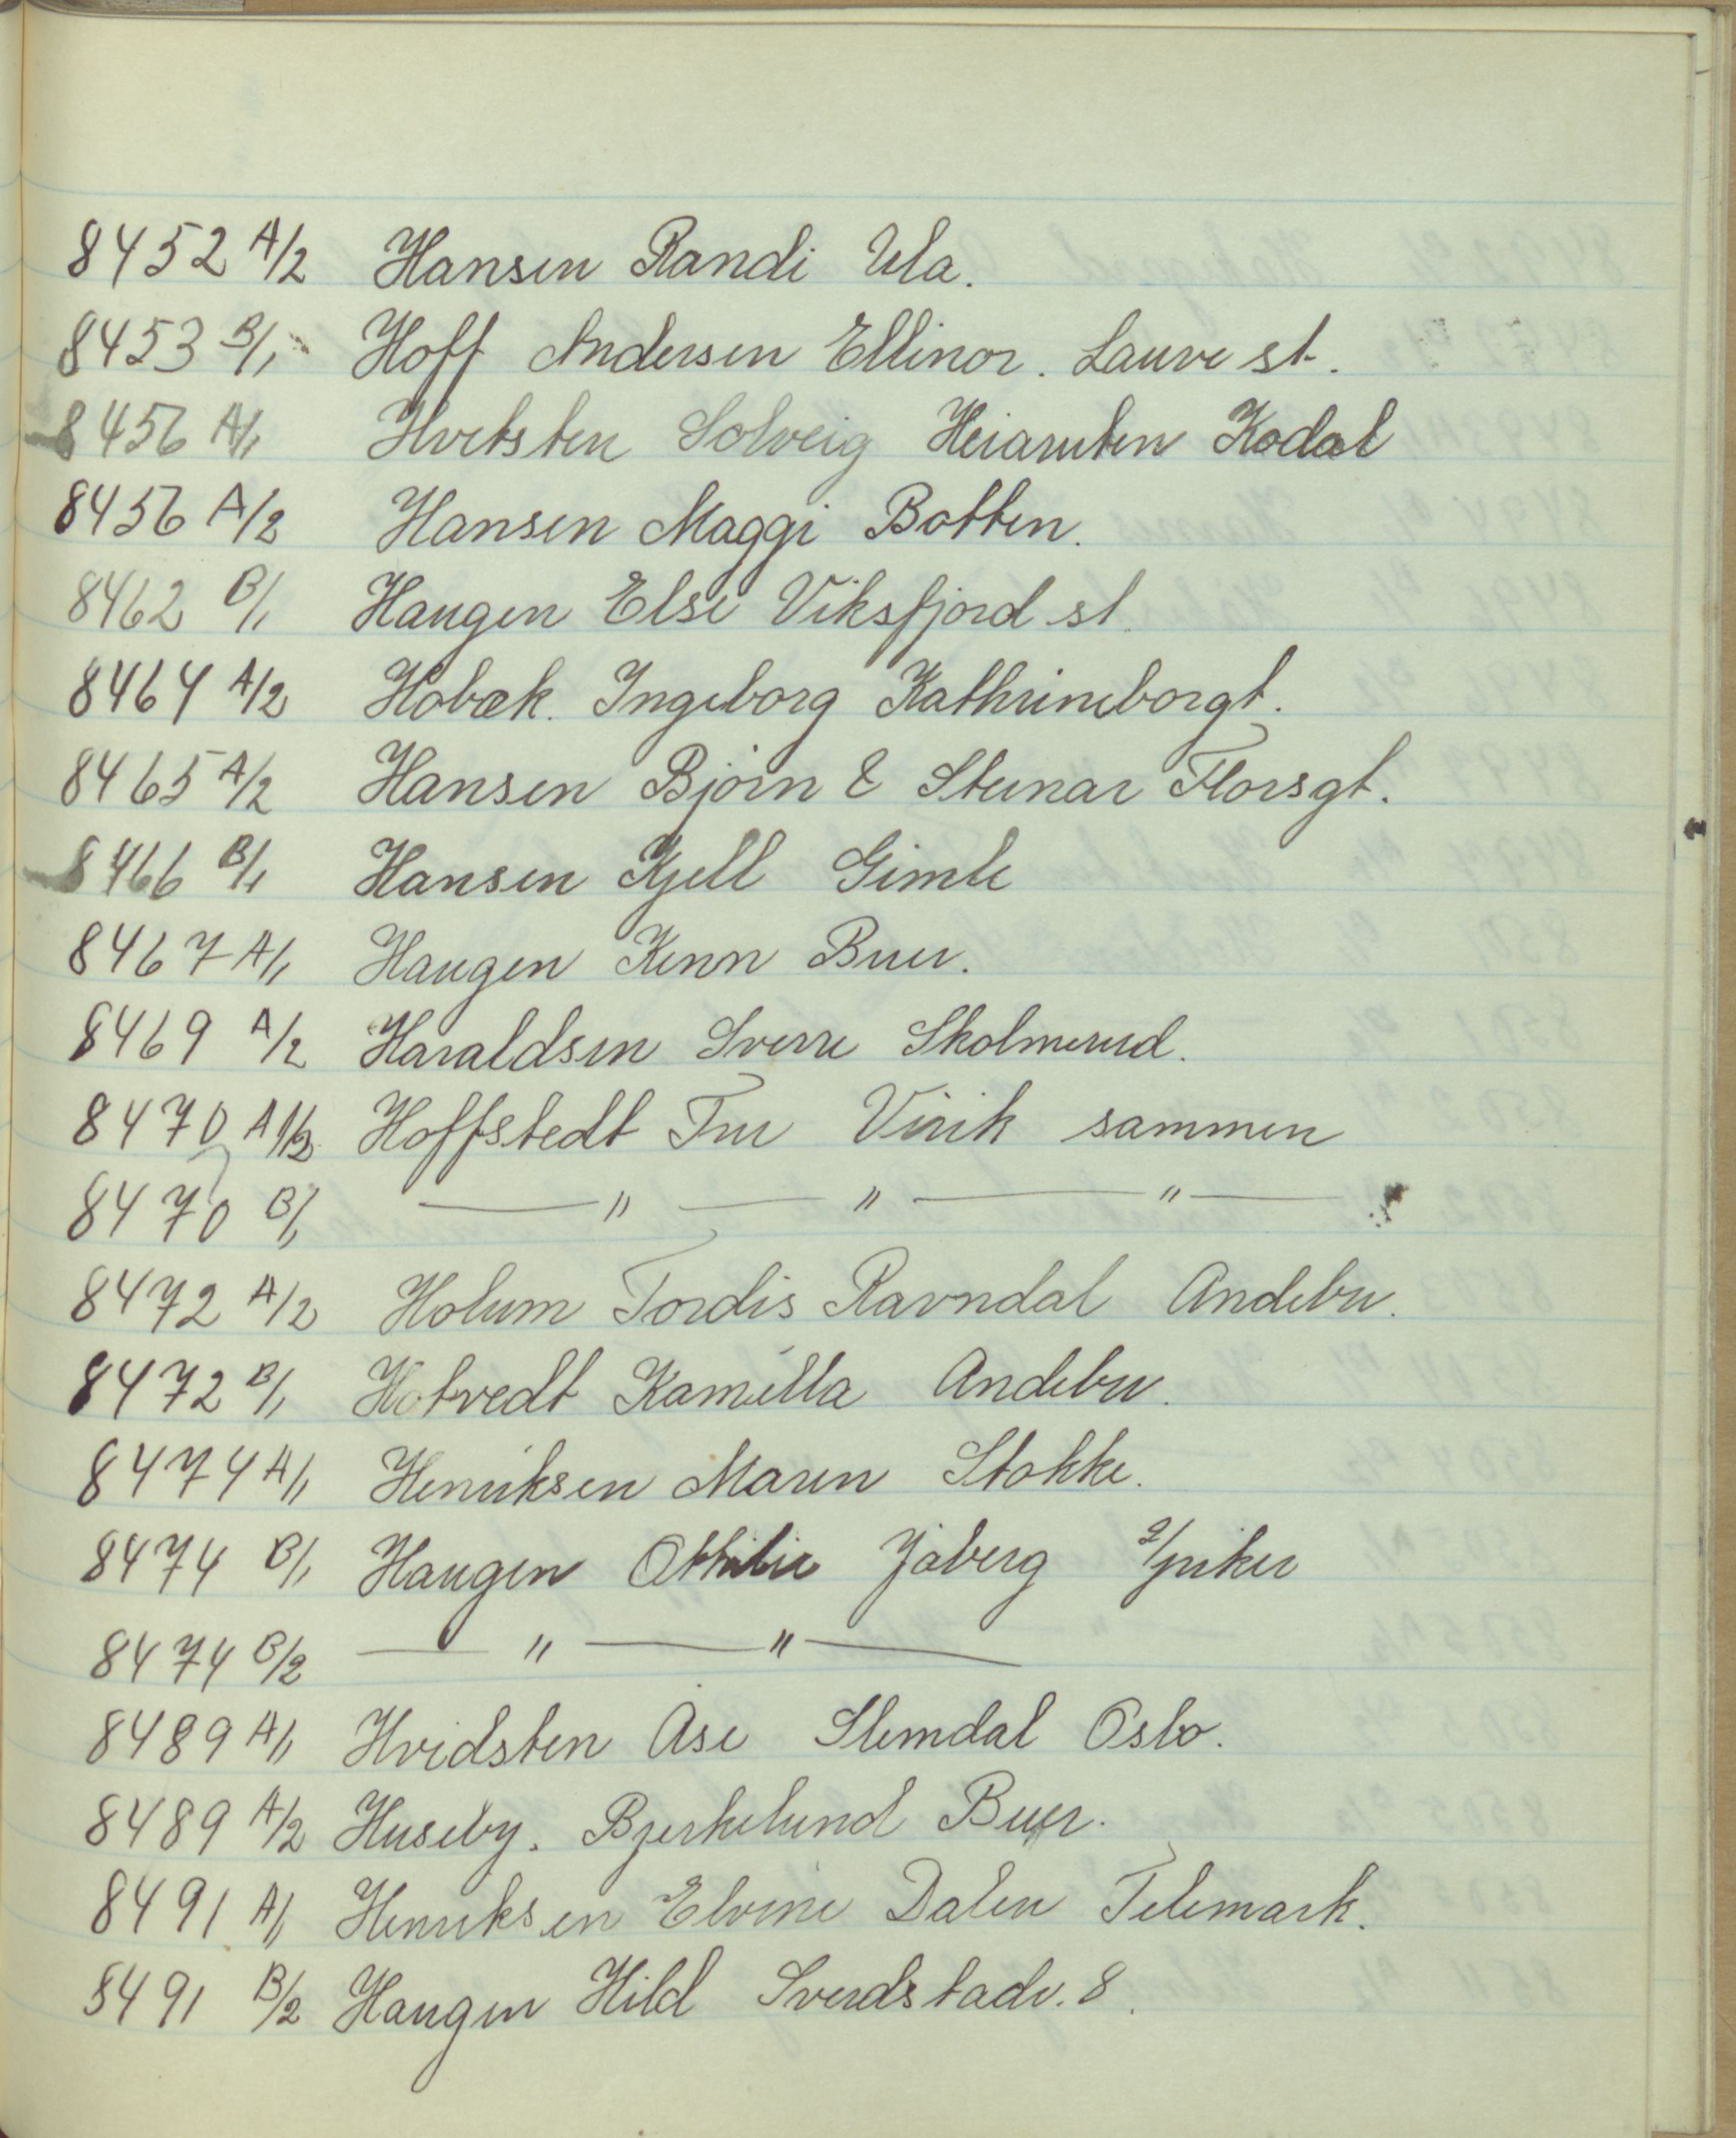 8452 A/2 Hansen Randi Ula.
8453 B/1 Hoff Andersen Ellinor. Lauve st.
8456 A/1 Hvitsten Solveig Heiaruten Kodal
8456 A/2 Hansen Maggi Botten.
8462 B/1 Haugen Else Viksfjord st.
8464 A/2 Hobæk. Ingeborg Kathrineborgt.
8465 A/2 Hansen Bjørn & Steinar Florsgt.
8466 B/1 Hansen Kjell Gimle
8467 A/1 Haugen Kenn Buer.
8469 A/2 Haraldsen Sverre Skolmerud.
8470 A1/2 Hoffstedt Fru Virik sammen
8470 B/1 — " — " — " —
8472 A/2 Holum Tordis Ravndal Andebu.
8472 B/1 Hotvedt Kamilla Andebu.
8474 A/1 Henriksen Maren Stokke.
8474 B/1 Haugen Othilie Jåberg 2/piker
8474 B/2 — " — " —
8489 A/1 Hvidsten Åse Slemdal Oslo.
8489 A/2 Huseby. Bjerkelund Buer.
8491 A/1 Henriksen Elvine Dalen Telemark.
8491 B/2 Haugen Hild Sverdstadv. 8.